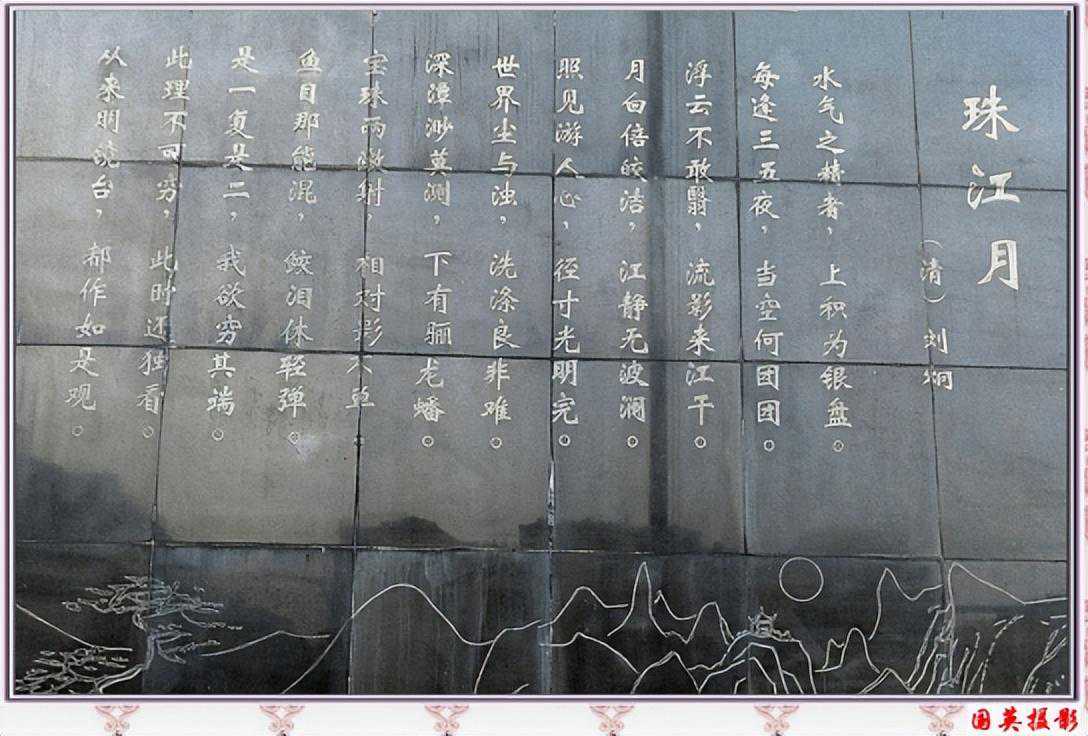 珠江月
（清）刘炯
水气之精者，上积为银盘。
每逢三五夜，当空何团团。
浮云不敢翳，流影来江干。
月白倍皎洁，江静无波澜。
照见游人心，径寸光明完。
世界尘与浊，洗涤良非难。
深潭渺莫测，下有骊龙蟠。
宝珠两激射，相对影不单。
鱼目那能混，鲛泪休轻弹。
是一复是二，我欲穷其端。
此理不可穷，此时还独看。
从来明镜台，都作如是观。
国英摄影